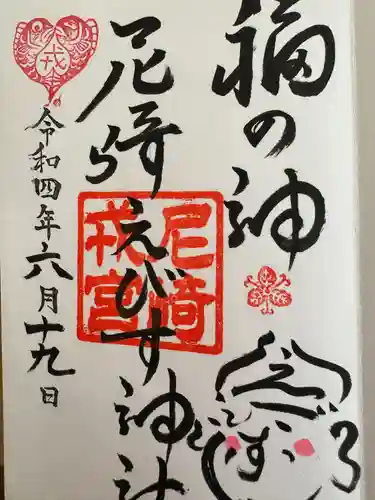 福の神
尼崎えびす神社
尼崎
戎宮
令和四年六月十九日
戎